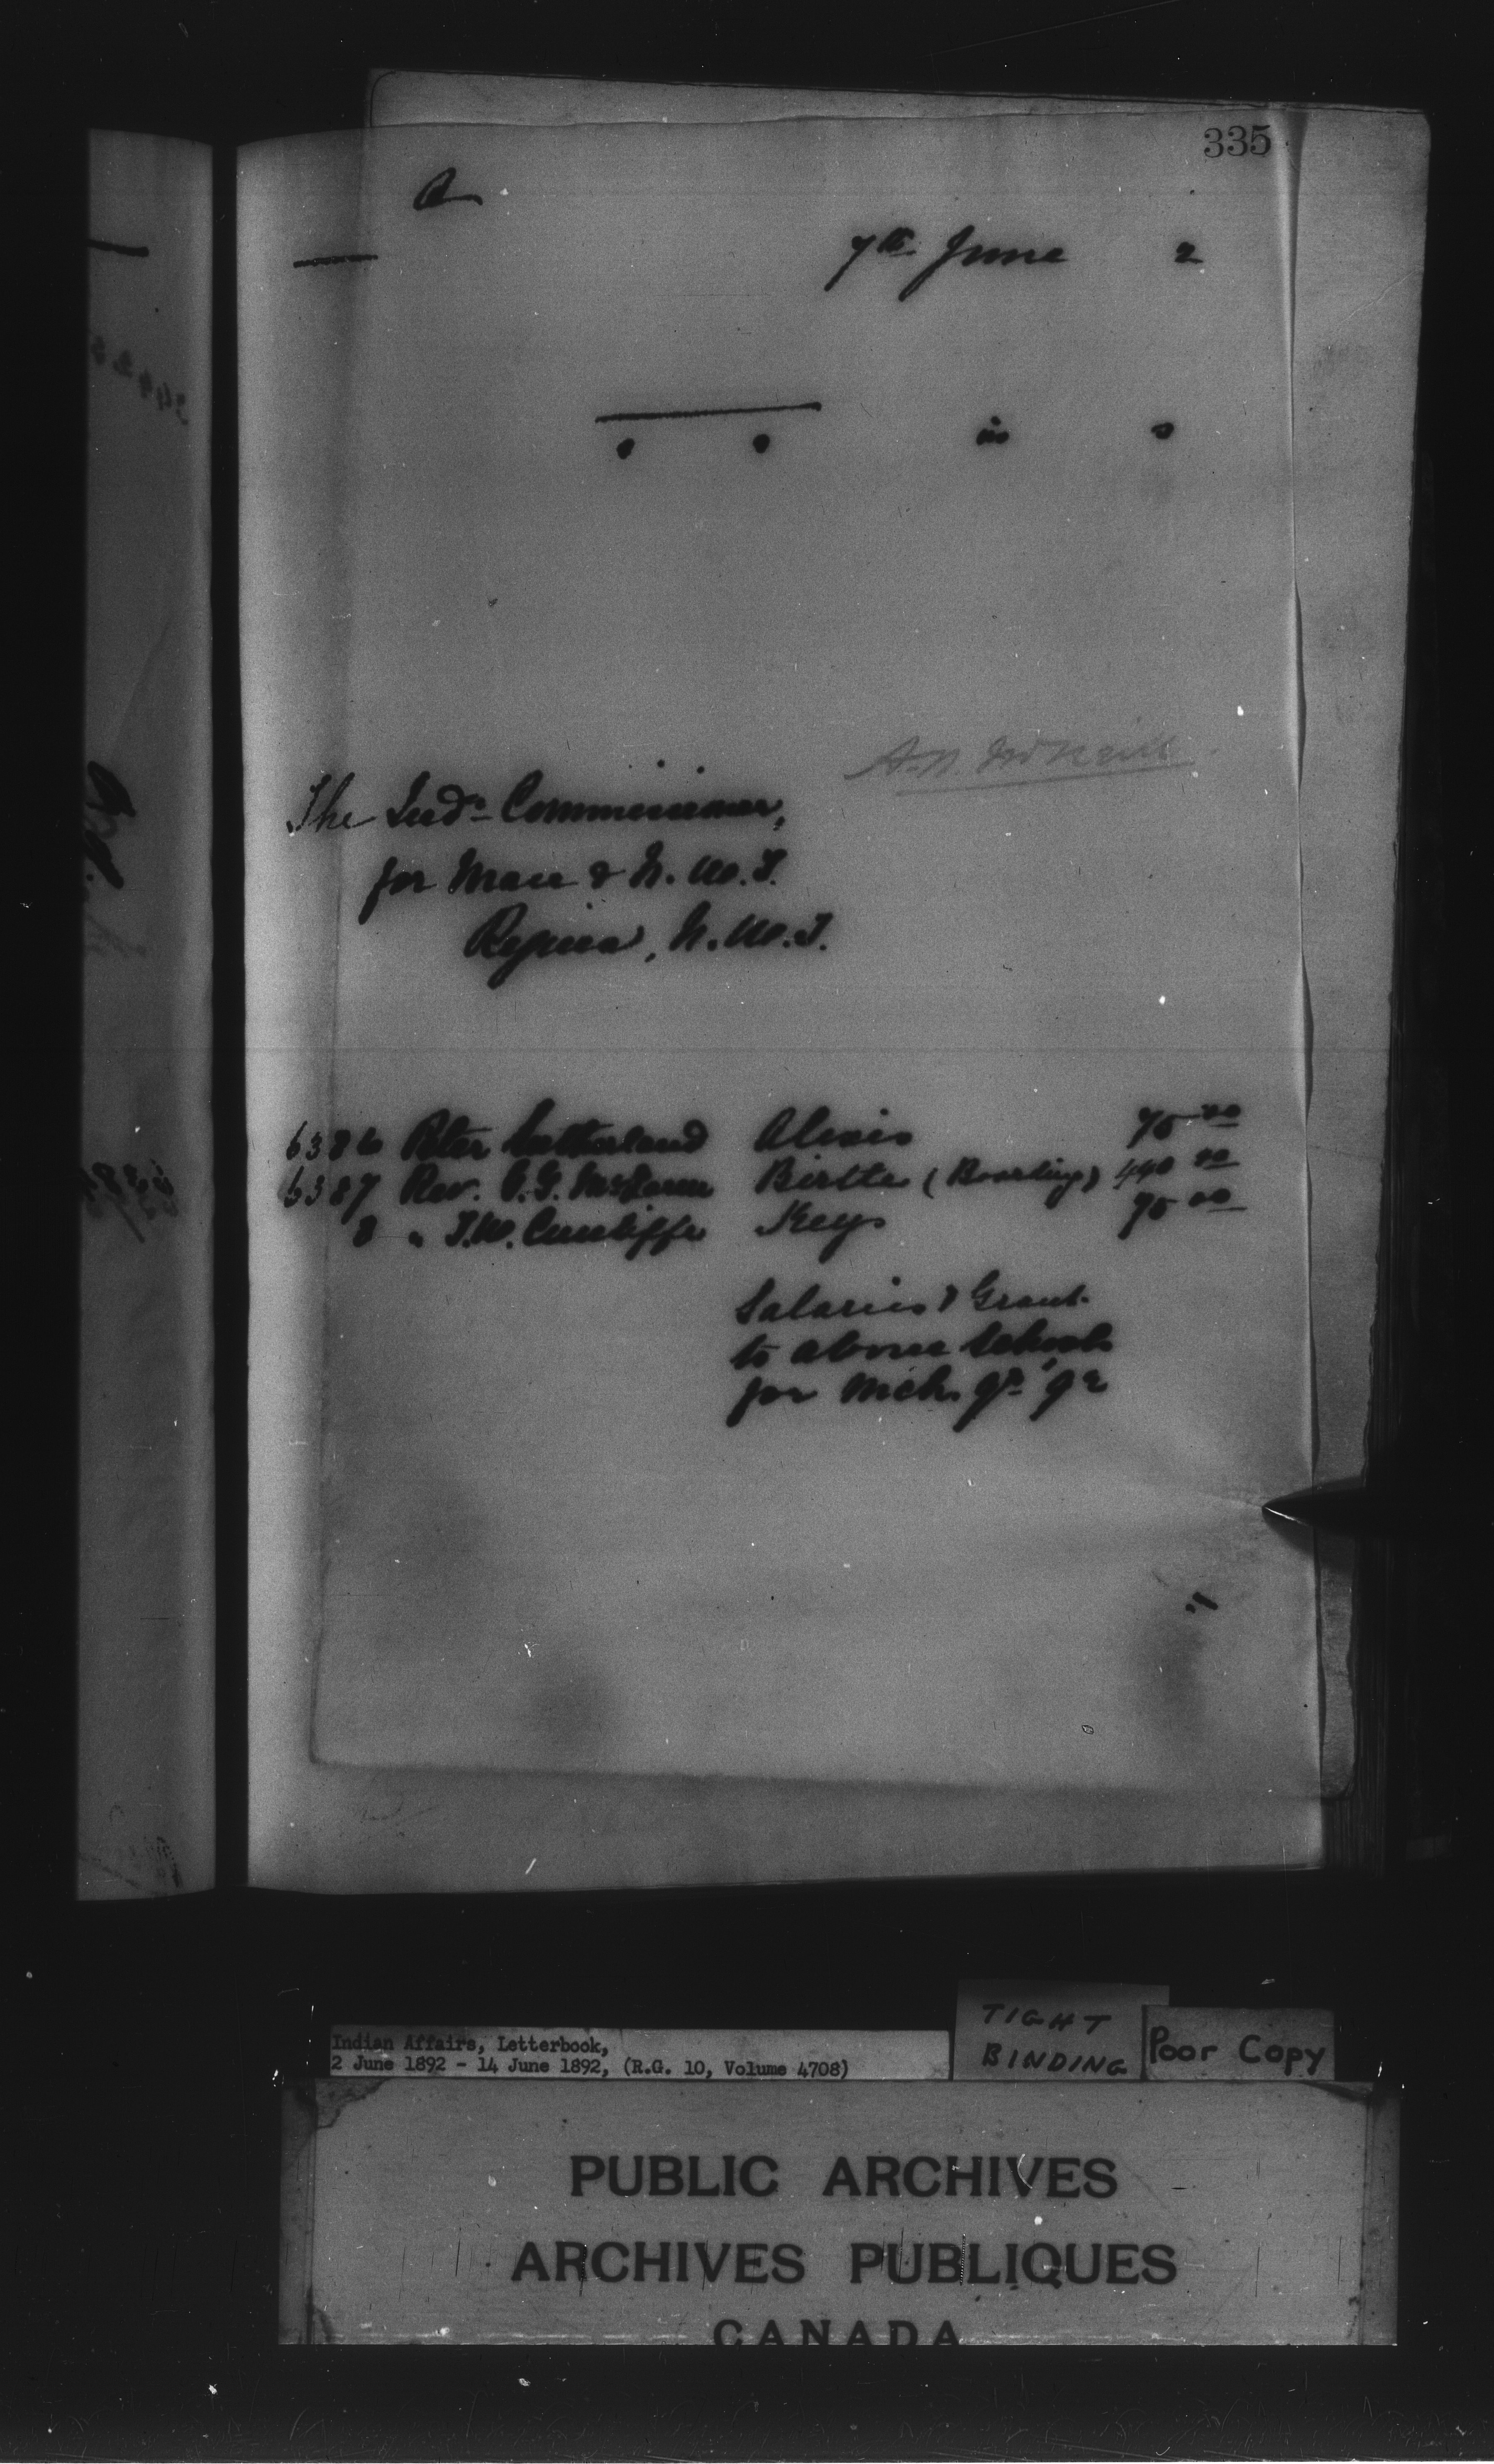 335
A
7th June 2
A. N. McNeill
The Indn Commissioner,
for Man & N. W. T.
Regina, N. W. T.
6386 Peter Sutherland Alexis 75 00
6387 Rev. G. G. McLaren Birtle (Boarding) 440 00
8 " T. W. Cunliffe Keys 75 00
Salaries & Grant
to above Schools
for Mch. qr. '92
Indian Affairs, Letterbook,
2 June 1892 - 14 June 1892, (R.G. 10, Volume 4708)
TIGHT
BINDING
Poor Copy
PUBLIC ARCHIVES
ARCHIVES PUBLIQUES
CANADA